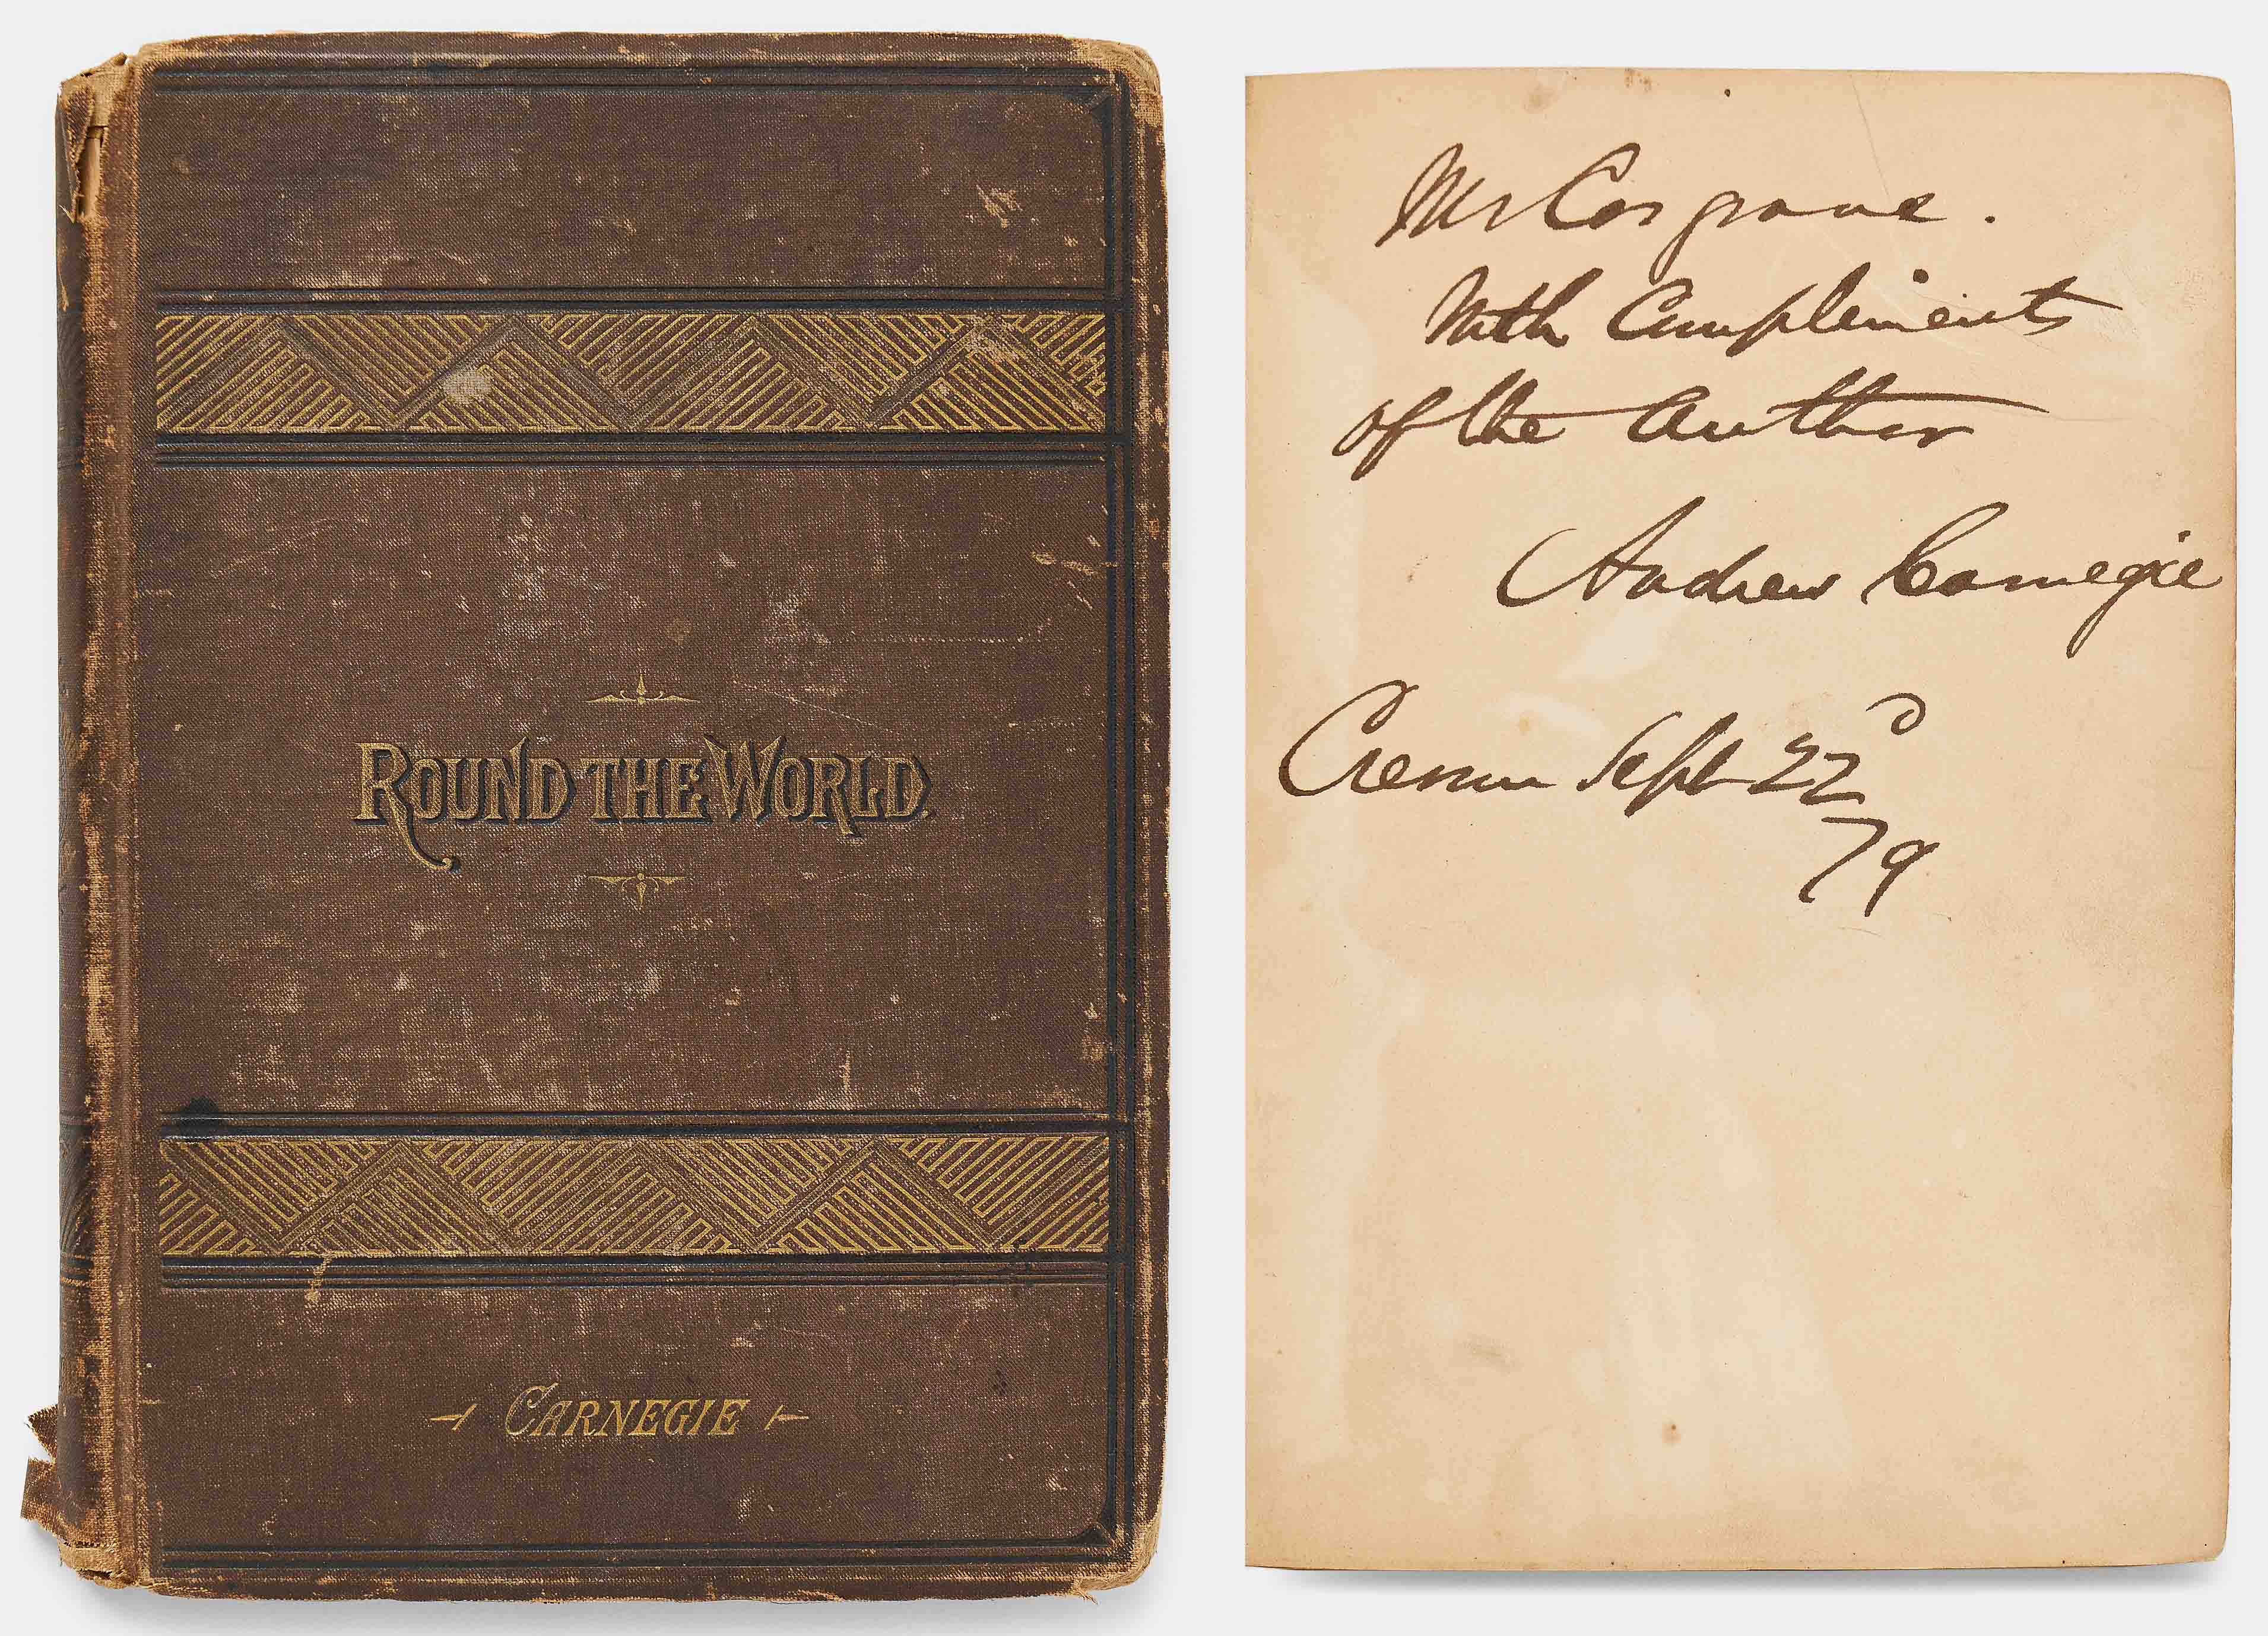 ROUND THE WORLD.
CARNEGIE
Mr Cosgrave.
With Compliments
of the Author
Andrew Carnegie
Cresson Sept 22d
79